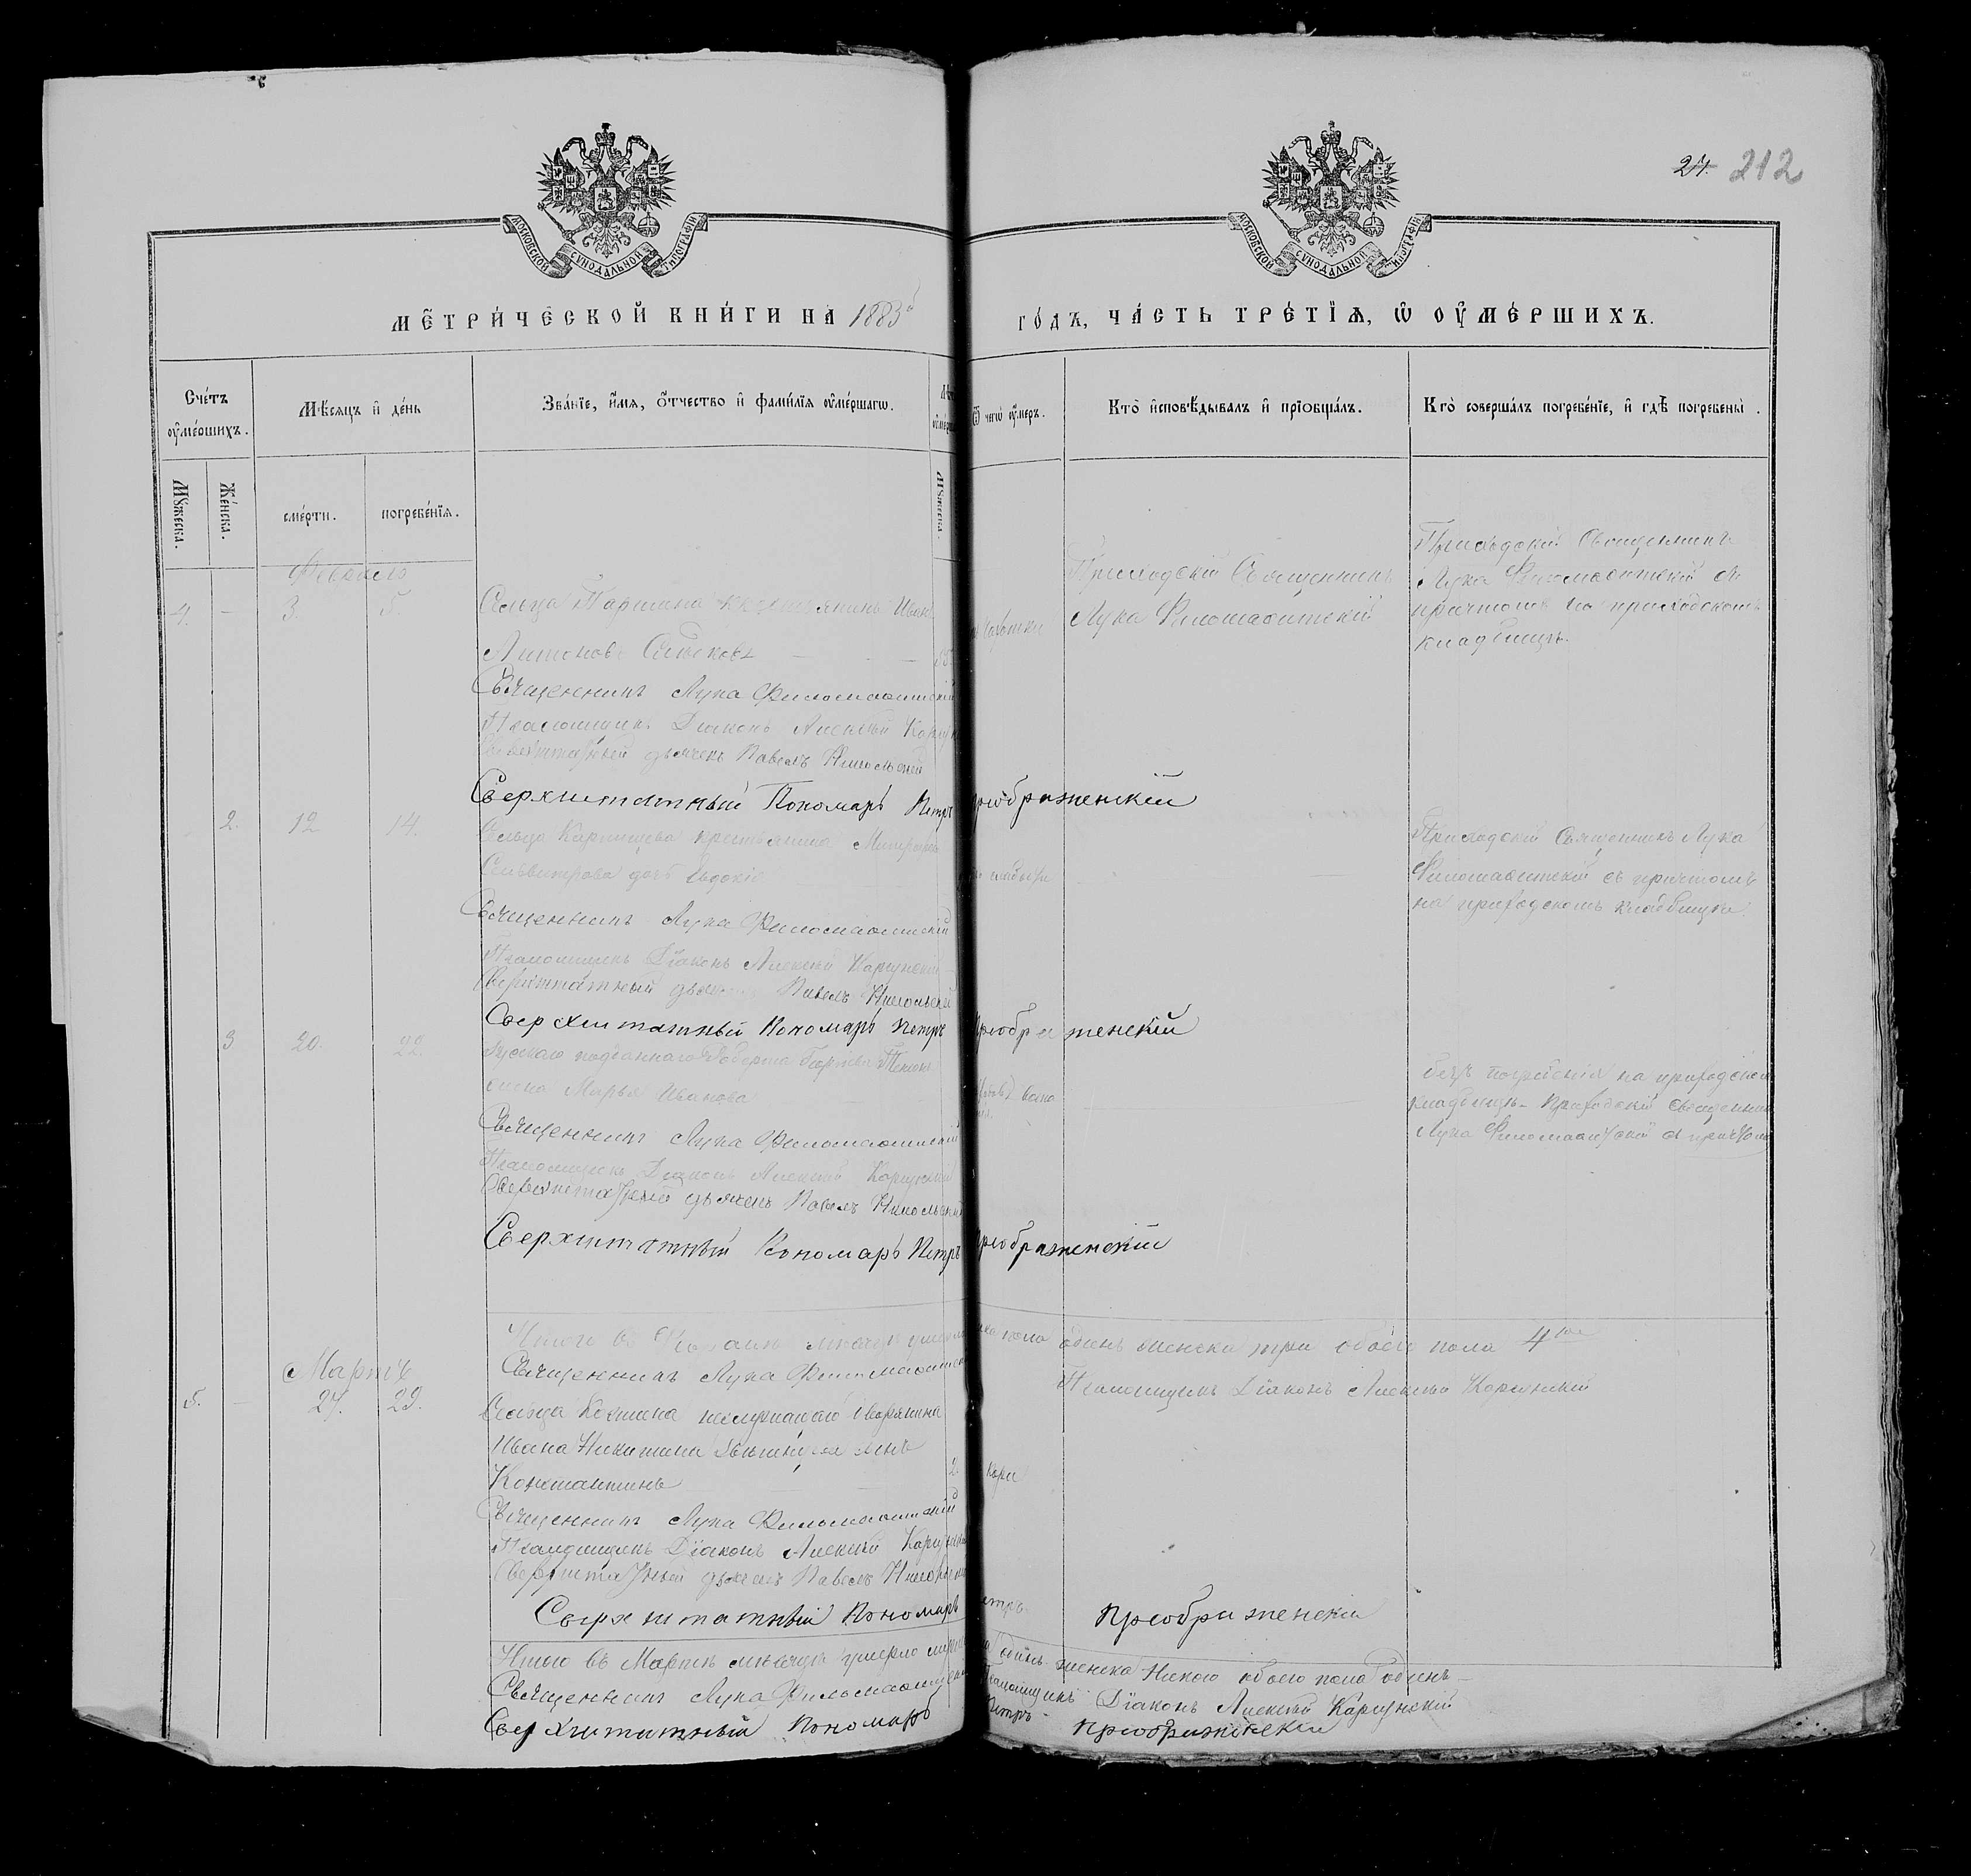 27. 212
МОСКОВСКОЙ СѴНОДАЛЬНОЙ ТИПОГРАФІИ
МОСКОВСКОЙ СѴНОДАЛЬНОЙ ТИПОГРАФІИ
МЕТРИЧЕСКОЙ КНИГИ НА 1883й ГОДЪ, ЧАСТЬ ТРЕТІЯ, Ѡ ОУМЕРШИХЪ.
Счетъ оумершихъ.
Мѣсяцъ и день
Званіе, имя, отчество и фамилія оумершагѡ.
Ѿ чегѡ оумеръ.
Кто исповѣдывалъ и пріобщалъ.
Кто совершалъ погребеніе, и гдѣ погребены.
Мꙋжеска. Женска. смерти. погребенія. Мꙋжеска.
Февраль
4. – 3. 5. Сельца Паршина крестьянинъ Иванъ
Антоновъ
чахотки
Приходскій Священникъ
Лука Филомаѳитскій
Приходскій Священникъ
Лука Филомаѳитскій съ
причтомъ на приходскомъ
кладбищѣ.
Священникъ Лука Филомаѳитскій
Псаломщикъ Діаконъ Алексѣй
Сверхштатный дьячекъ Павелъ Никольскій
Сверхштатный Пономарь Петръ Преображенскій
2. 12 14.
Сельца крестьянина
дочь Евдокія
Приходскій Священникъ Лука
Филомаѳитскій съ причтомъ
на приходскомъ кладбищѣ.
Священникъ Лука Филомаѳитскій
Псаломщикъ Діаконъ Алексѣй
Сверхштатный дьячекъ Павелъ Никольскій
Сверхштатный Пономарь Петръ Преображенскій
3 20. 22.
подданнаго Роберта
жена Марья Иванова
безъ погребенія на приходскомъ
кладбищѣ – Приходскій Священникъ
Лука Филомаѳитскій съ причтомъ
Священникъ Лука Филомаѳитскій
Псаломщикъ Діаконъ Алексѣй
Сверхштатный дьячекъ Павелъ Никольскій
Сверхштатный Пономарь Петръ Преображенскій
Итого въ Февралѣ мѣсяцѣ умерло пола одинъ женска три обоего пола 4ре
Священникъ Лука Филомаѳитскій
Псаломщикъ Діаконъ Алексѣй
Мартъ
5. – 27. 29.
Сельца дворянина
Ивана Никитина сынъ
Константинъ 2 кори
Священникъ Лука Филомаѳитскій
Псаломщикъ Діаконъ Алексѣй
Сверхштатный дьячекъ Павелъ Никольскій
Сверхштатный Пономарь Петръ Преображенскій
Итого въ Мартѣ мѣсяцѣ умерло одинъ женска никого обоего пола одинъ –
Священникъ Лука Филомаѳитскій Псаломщикъ Діаконъ Алексѣй
Сверхштатный Пономарь Петръ Преображенскій